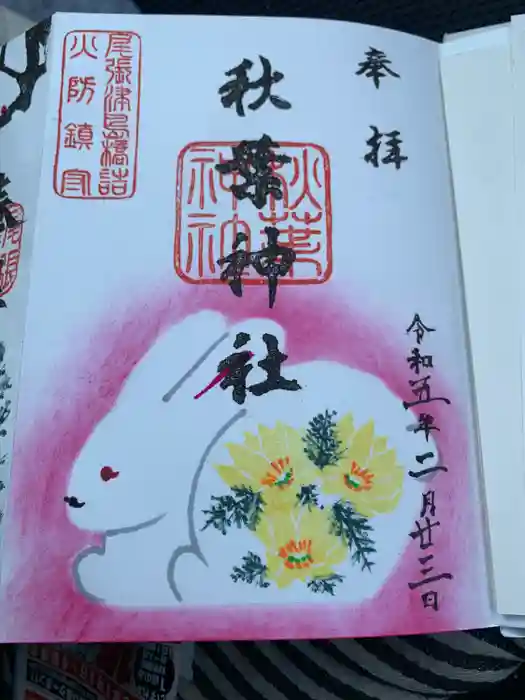 奉拝
秋葉神社
秋葉
神社
尾張津島橋詰
火防鎮守
令和五年二月廿三日